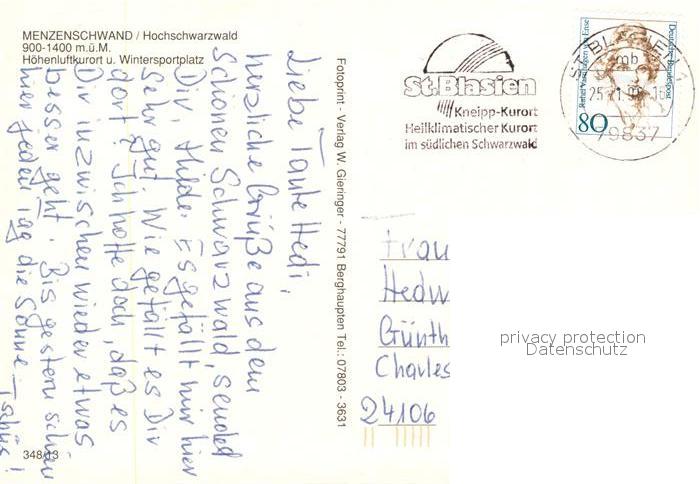 MENZENSCHWAND / Hochschwarzwald
900-1400 m.ü.M.
Höhenluftkurort u. Wintersportplatz
Liebe Tante Hedi,
herzliche Grüße aus dem
schönen Schwarzwald, sendet
Dir, Hilde. Es gefällt mir hier
sehr gut. Wie gefällt es Dir
dort? Ich hoffe doch, daß es
Dir inzwischen wieder etwas
besser geht. Bis gestern schien
hier jeden Tag die Sonne. Tschüs!
348/13
Fotoprint - Verlag W. Gieringer - 77791 Berghaupten Tel.: 07803 - 3631
St. Blasien
Kneipp-Kurort
Heilklimatischer Kurort
im südlichen Schwarzwald
Deutsche Bundespost
Rahel Varnhagen von Ense
80
ST BLASIEN 1
mb
79837
Frau
Hedw
Günth
Charles
24106
privacy protection
Datenschutz